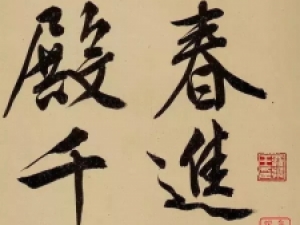 春進
殿千